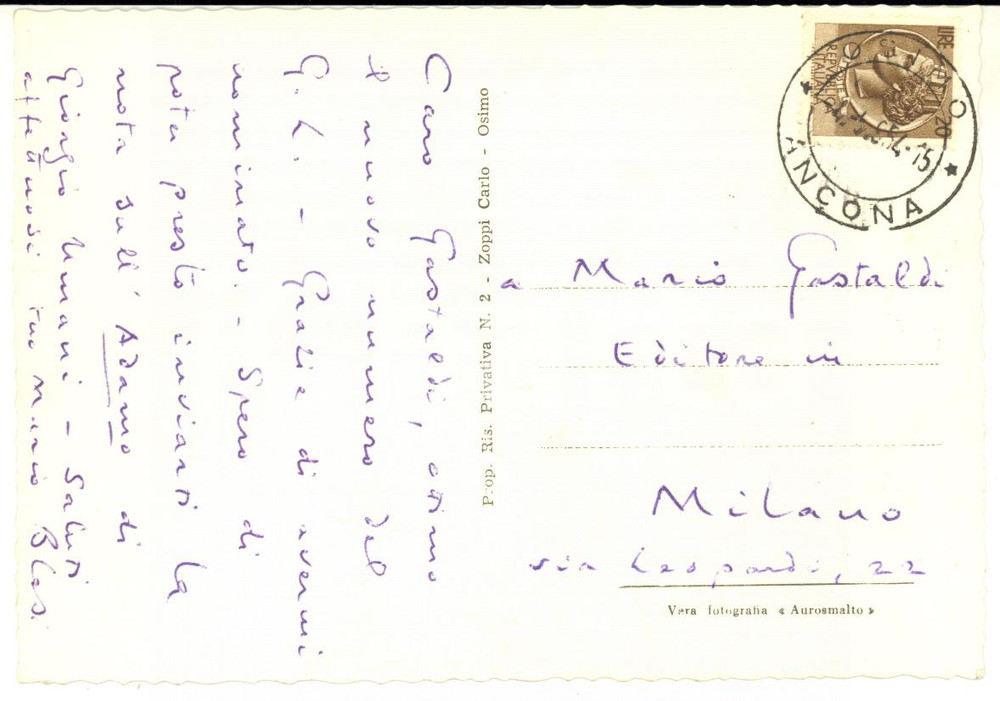 Caro Gastaldi, ottimo
il nuovo numero del
G. L. - Grazie di avermi
nominato. - Spero di
poter presto inviarti la
nota sull' Adamo di
Giorgio Umani - Saluti
affettuosi tuo Mario Blasi
Prop. Ris. Privativa N. 2 - Zoppi Carlo - Osimo
LIRE 20
REPUBBLICA ITALIANA
ANCONA
a Mario Gastaldi
Editore in
Milano
via Leopardi, 22
Vera fotografia « Aurosmalto »